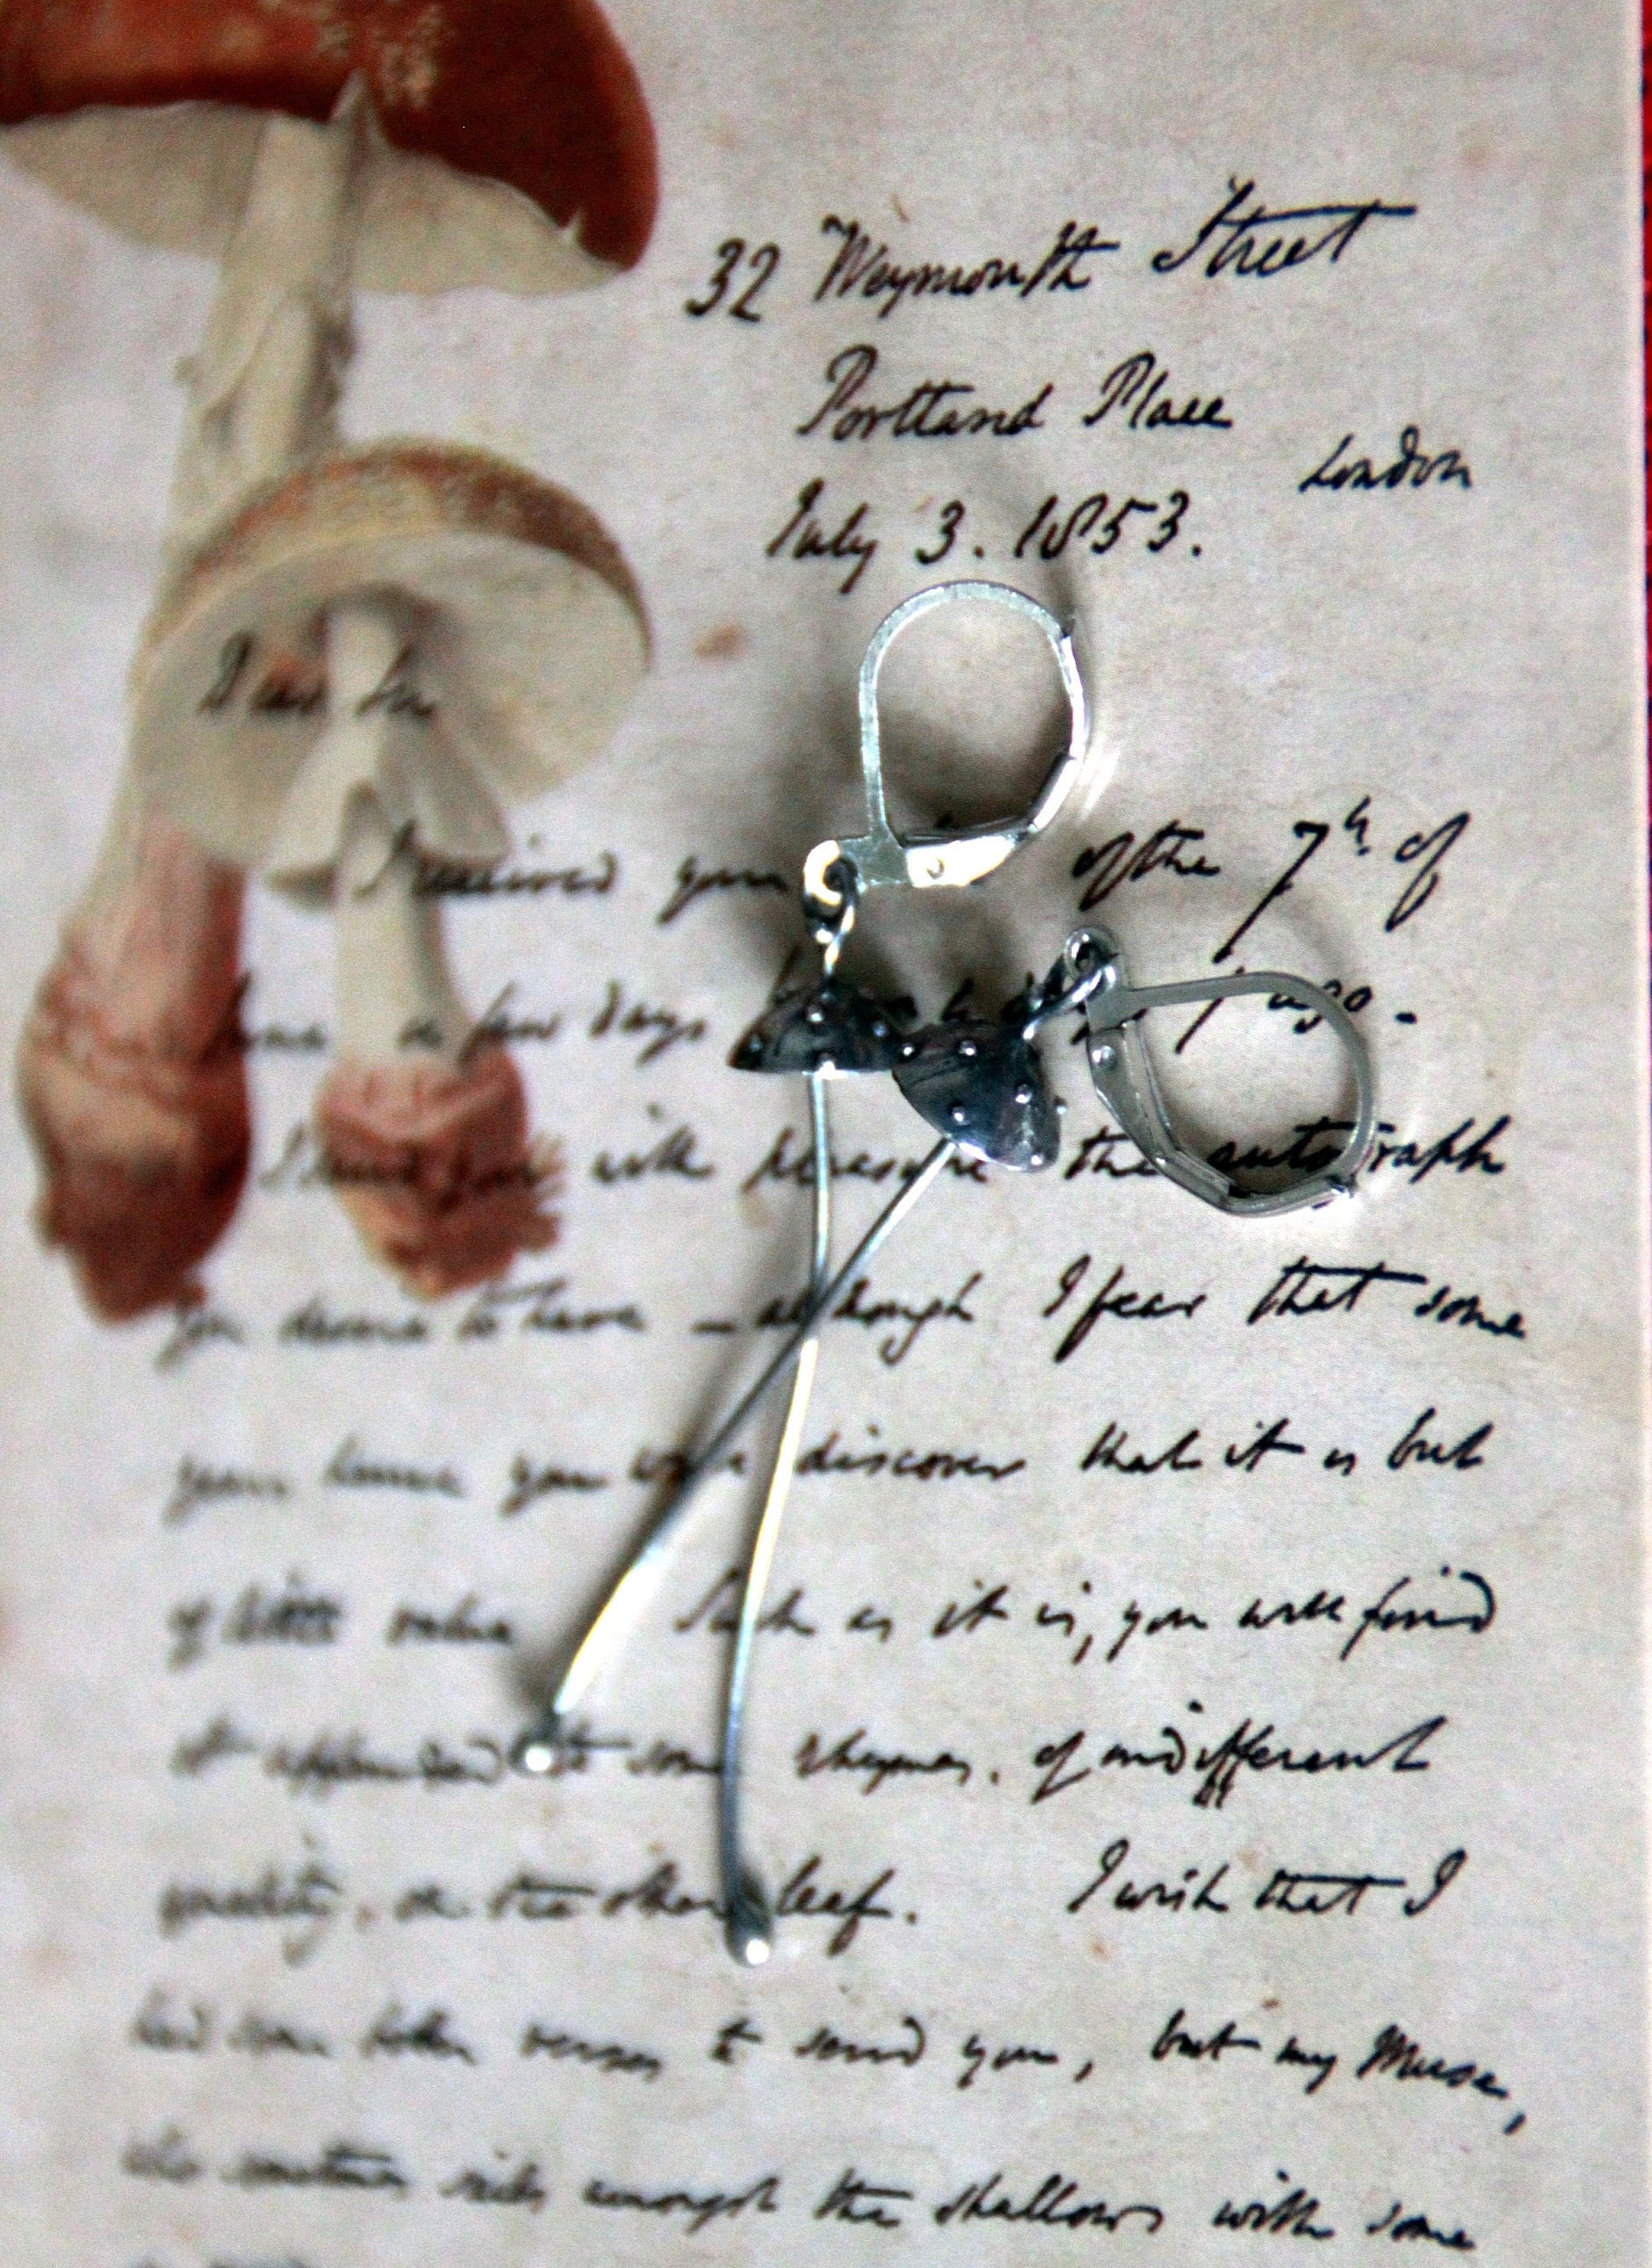 32 Weymouth Street
Portland Place
London
July 3. 1853.
Dear Sir
I received your of the 7th of
June a few days ago -
I send you with pleasure the autograph
you desire to have - although I fear that some
years hence you will discover that it is but
of little value Such as it is, you will find
it appended to some rhymes, of indifferent
quality, on the other leaf. I wish that I
had some better verses to send you, but my Muse,
who sometimes amongst the shallows with some